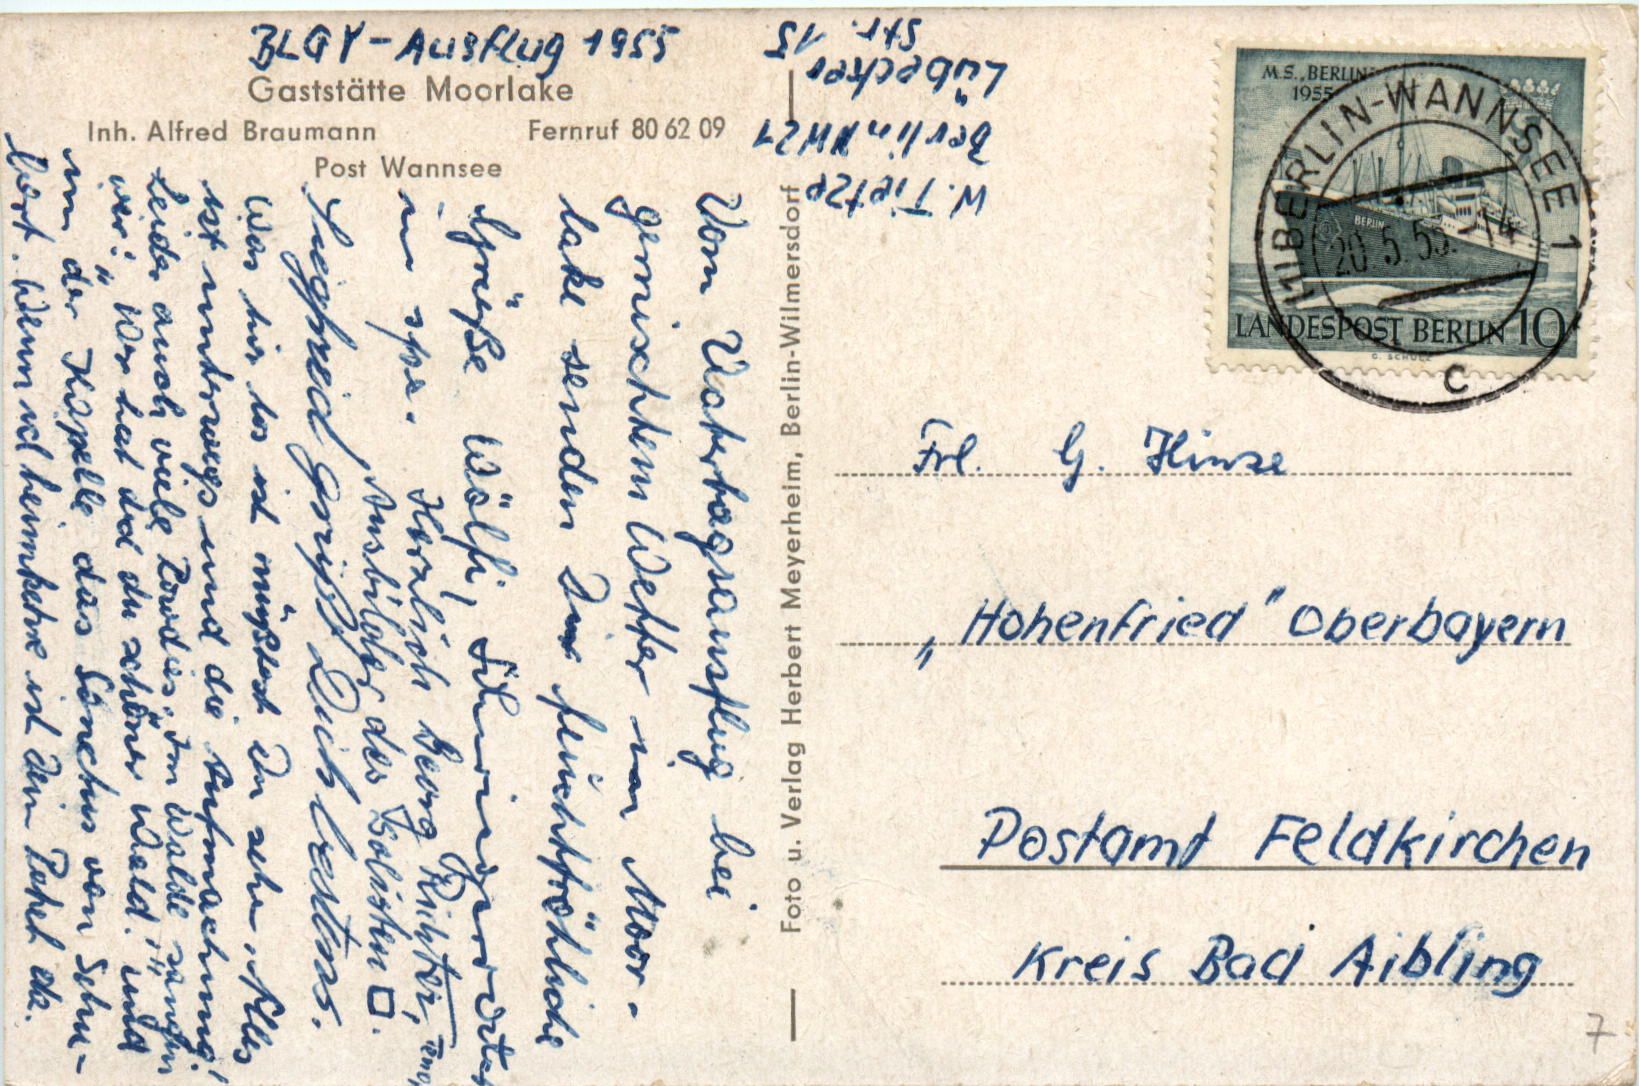 BLGY - Ausflug 1955
Gaststätte Moorlake
Inh. Alfred Braumann Fernruf 80 62 09
Post Wannsee
W. Tietze
Berlin NW 21
Lübecker
Str. 15
Vom Vatertagsausflug bei
gemischtem Wetter im Moor-
lake senden Dir feuchtfröhliche
Grüße Wölfi,
in spe. Herzlich Georg Richter,
Ausbilder der Solisten
Siegfried grüßt Dich bestens.
Was hier los ist müßtest Du sehn. Alles
ist unterwegs und die Aufmachung!
Leider auch viele Rowdies. Im Walde sangen
wir: "Wer hat dich du schöner Wald" und
von der Kapelle das Sanctus von Schu-
bert. Wenn ich heimkehre ist Dein Paket da.
Foto u. Verlag Herbert Meyerheim, Berlin-Wilmersdorf
M.S. „BERLIN"
1955
BERLIN
LANDESPOST BERLIN 10
G. SCHULZ
(1) BERLIN-WANNSEE 1
20.5.55.-14
c
Frl. G. Hinze
„Hohenfried" Oberbayern
Postamt Feldkirchen
Kreis Bad Aibling
7